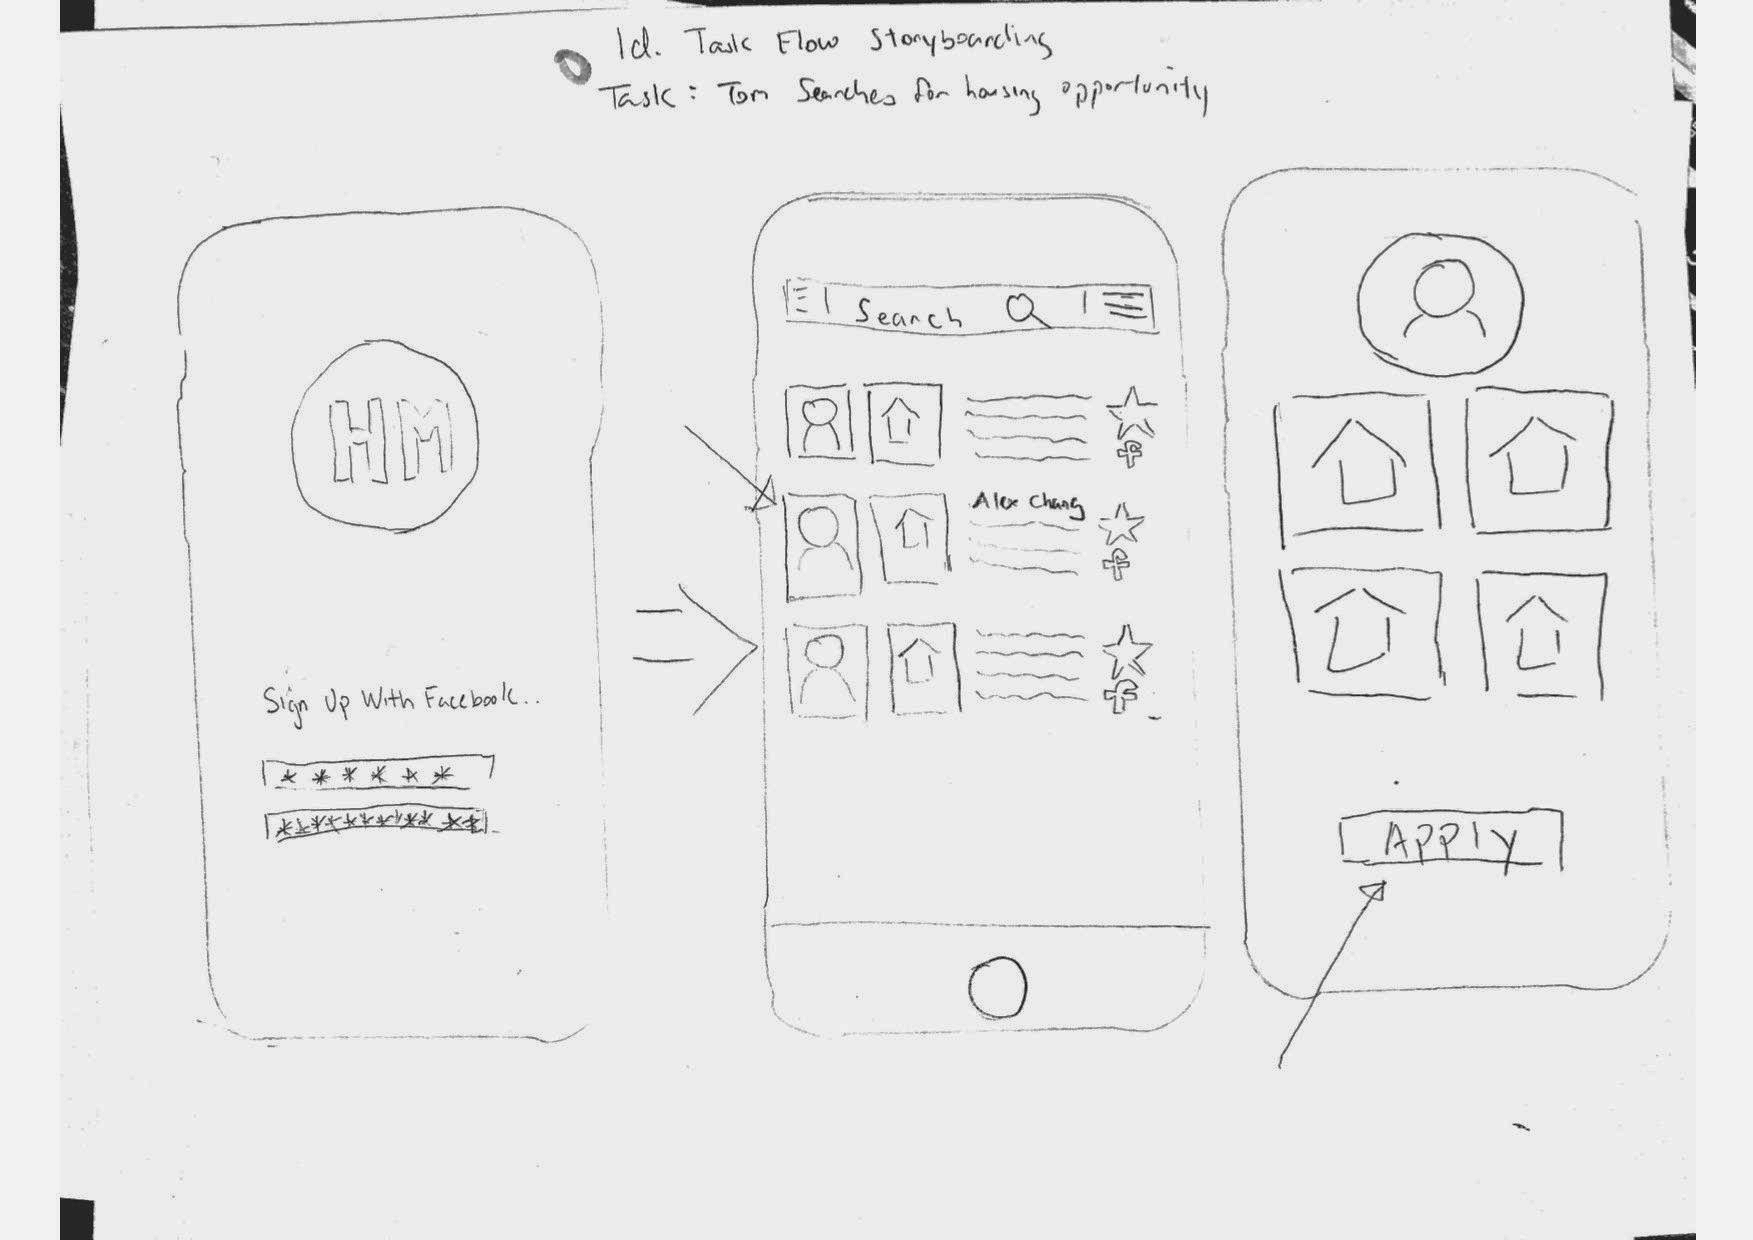 1d. Task Flow Storyboarding
Task: Tom Searches for housing opportunity
HM
Sign Up With Facebook..
******
***********
Search
f
Alex Chang
f
f
Apply